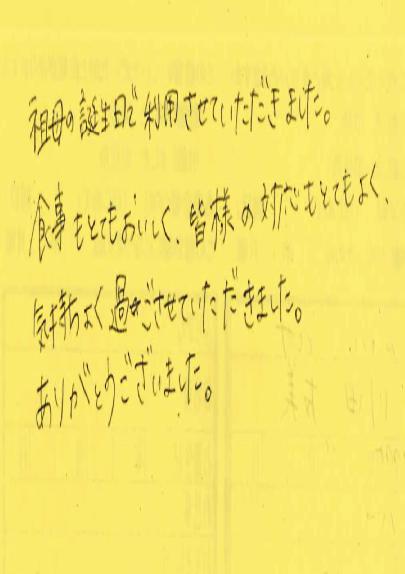 祖母の誕生日で利用させていただきました。
食事もとてもおいしく、皆様の対応もとてもよく、
気持ちよく過ごさせていただきました。
ありがとうございました。